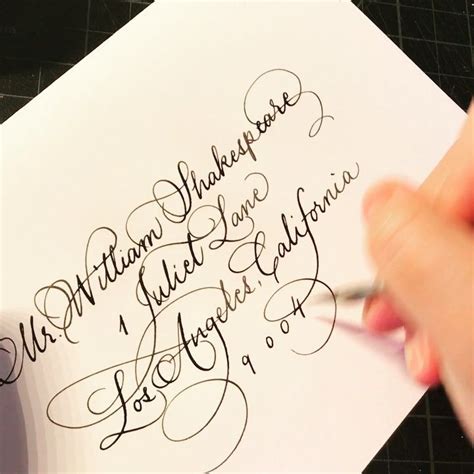 Mr. William Shakespeare
1 Juliet Lane
Los Angeles, California
9004